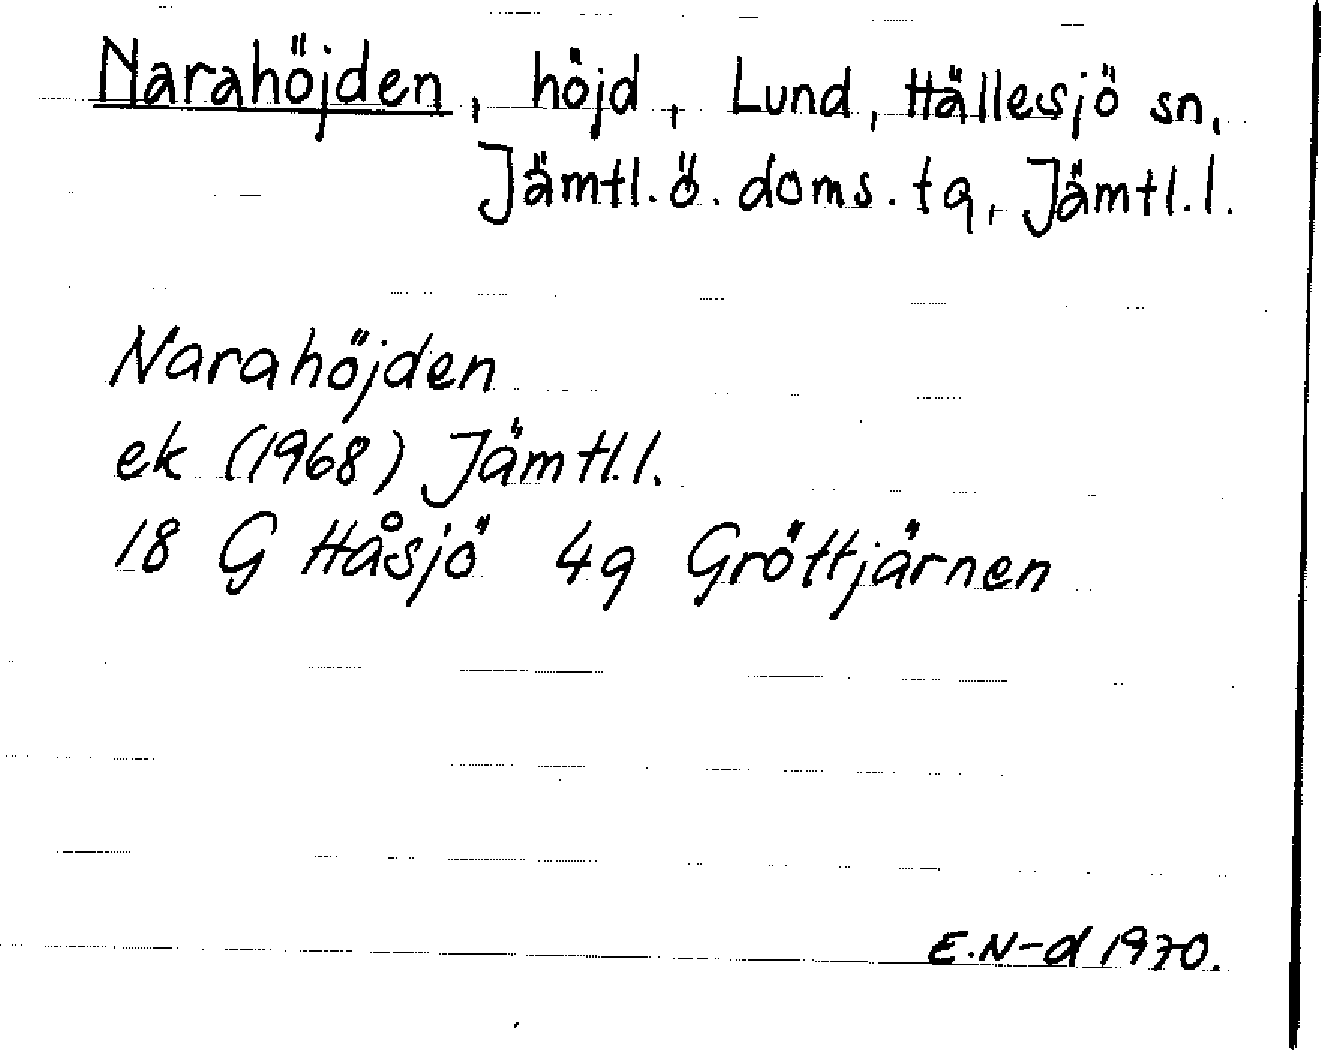 Narahöjden, höjd, Lund, Hällesjö sn,
Jämtl. ö. doms. tg, Jämtl. l.
Narahöjden
ek (1968) Jämtl. l.
18 G Håsjö 4g Gröttjärnen
E. N-d 1970.